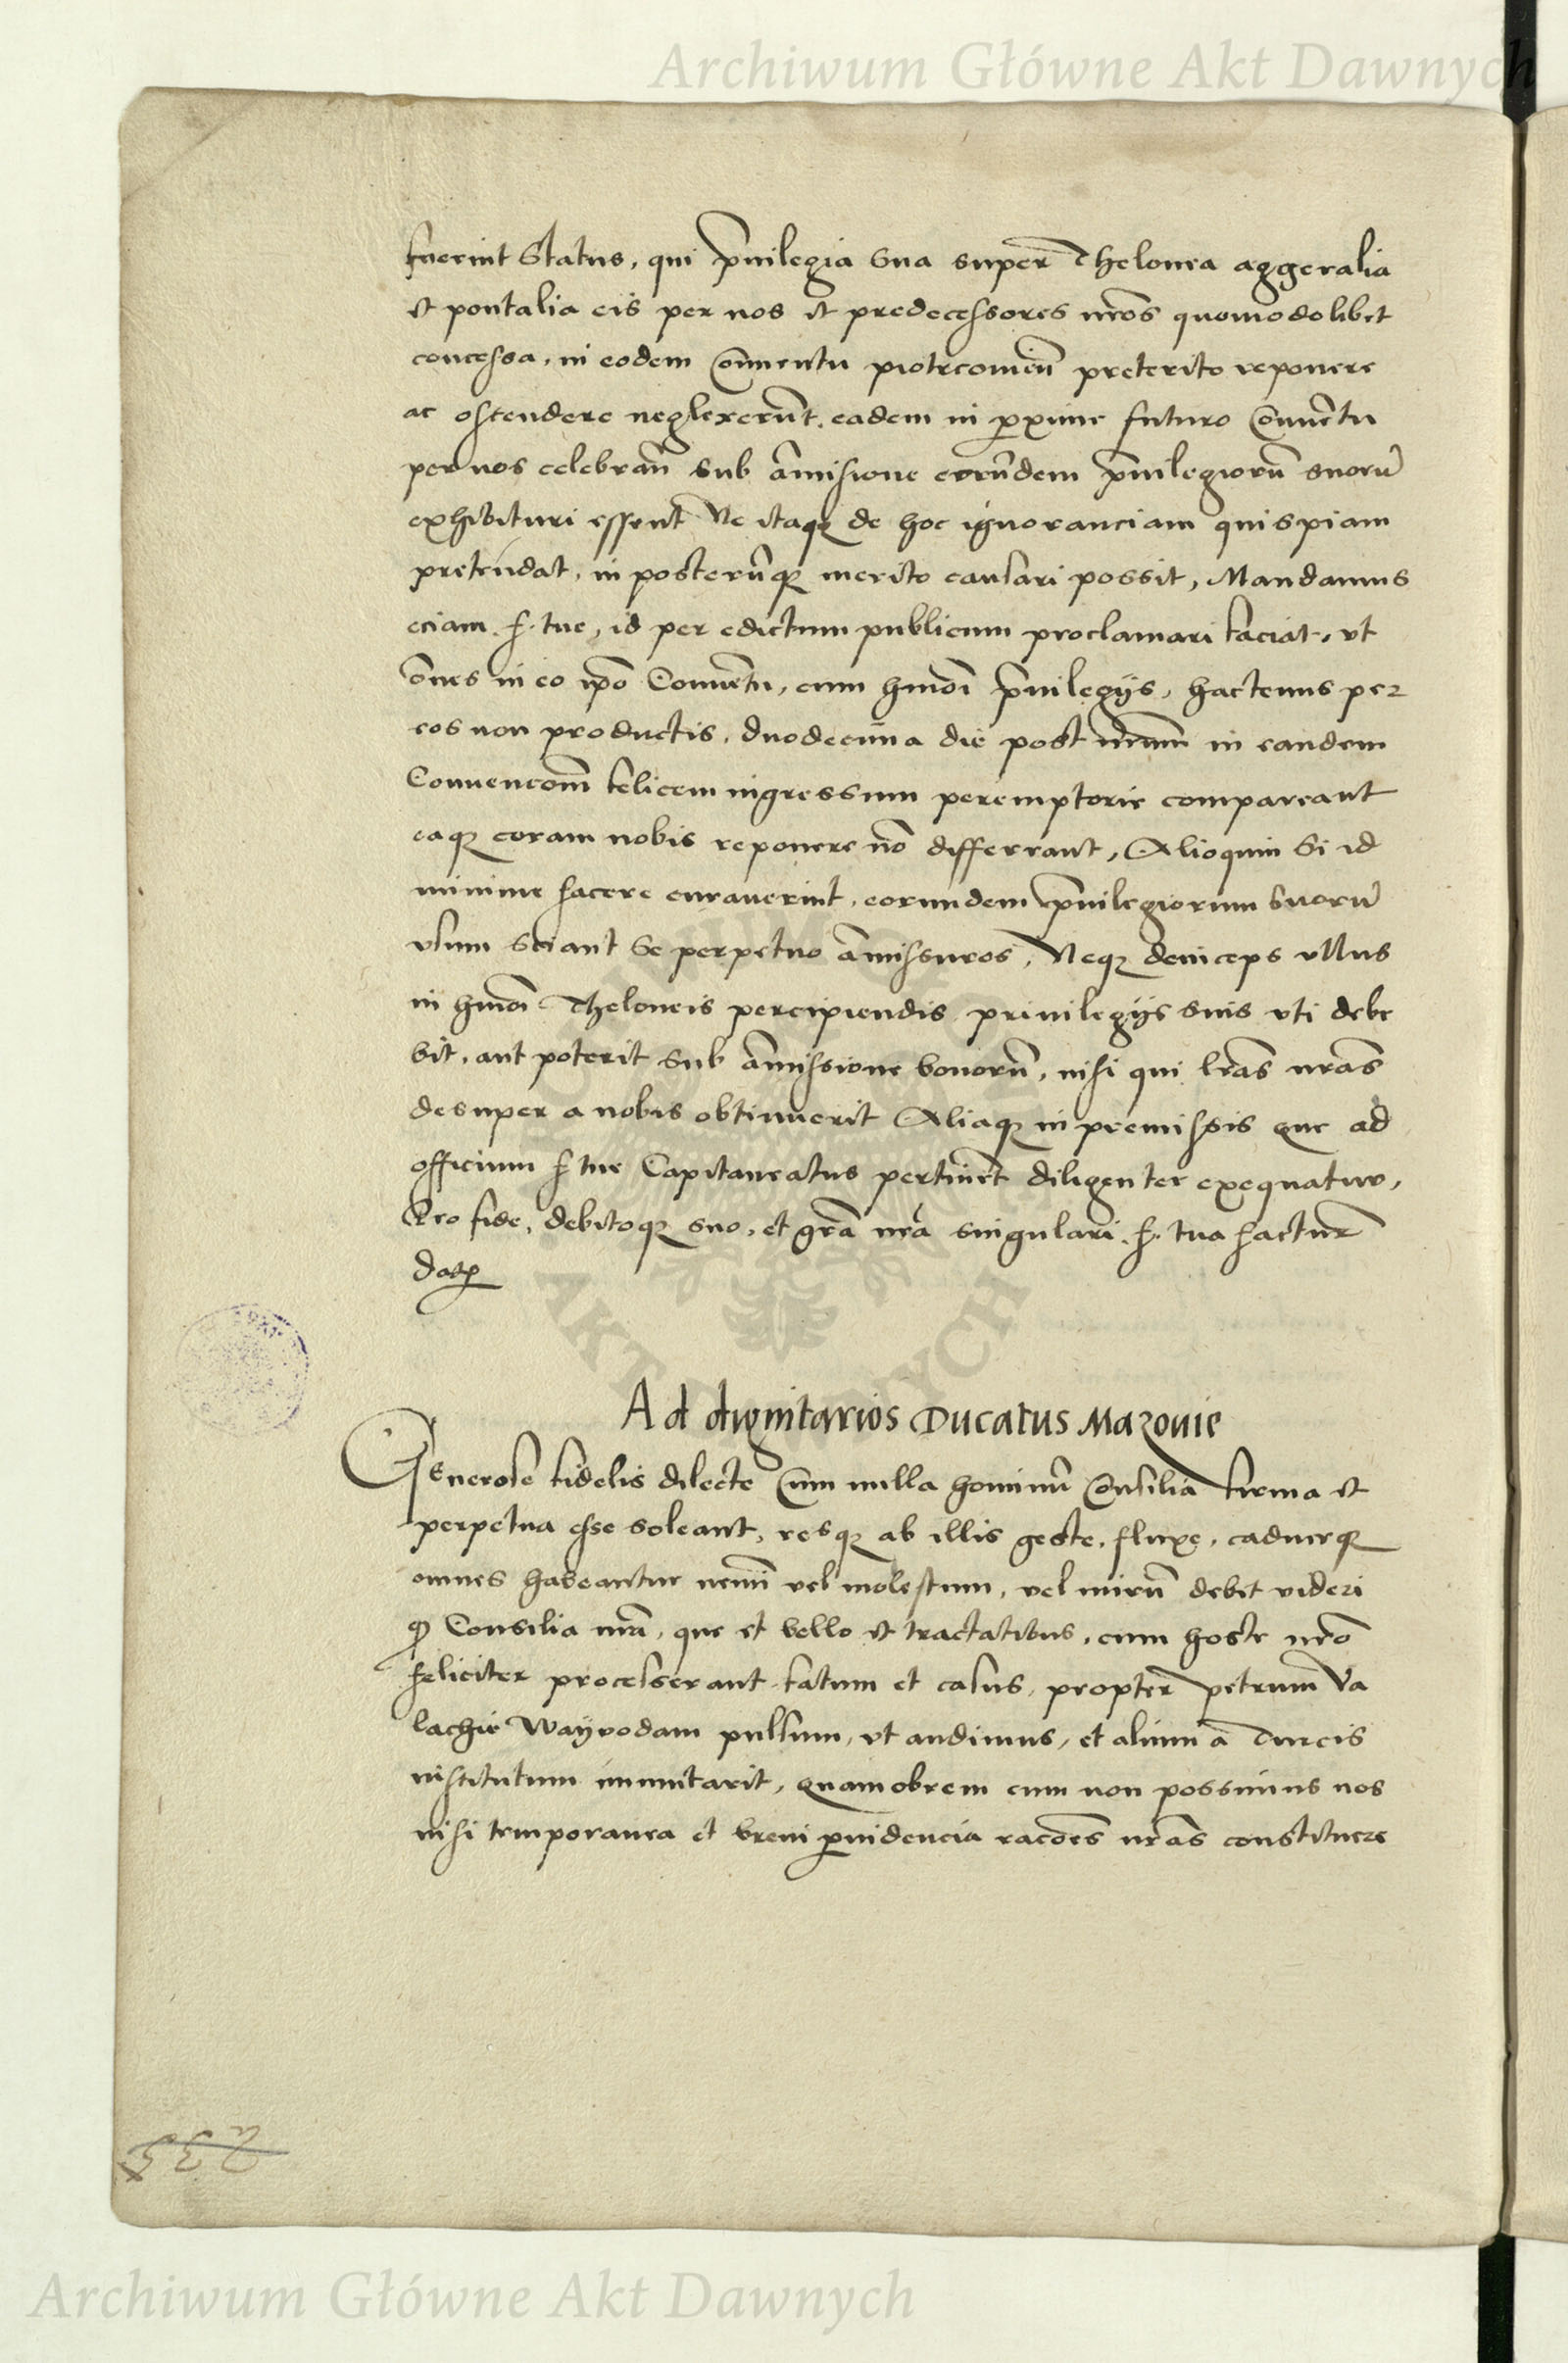 Archiwum Główne Akt Dawnych
fuerint Status, qui p̄uilegia Sua super Thelonea aggeralia
et pontalia eis per nos et predecessores nr̄os quomodolibet
concessa, in eodem Conuentu piotrcouień preterito reponere
ac ostendere neglexerūnt, eadem in p̱xime futuro Conuētu
per nos celebrań sub āmisione eorūndem p̄uilegiorū suorū
exhibituri essent Ne itaqꝫ de hoc ignoranciam quispiam
pretēndat, in posterūmqꝫ merito causari possit, Mandamus
eciam .f. tue, id per edictum publicum proclamari faciat, vt
om̄nes in eo ip̄o Conuētu, cum hmōi p̄uilegijs, hactenus per
eos non productis, duodecima die post nr̄um in eandem
Conuencōm felicem ingressum peremptorie compareant
eaqꝫ coram nobis reponere nō differrant, Alioquin Si id
minime facere curauerint, eorumdem p̄uilegiorum Suorū
vsum sciant Se perpetuo āmissuros, Neqꝫ deinceps vllus
in hmōi Theloneis percipiendis priuilegijs suis vti debe
bit, aut poterit sub āmissione bonorū, nisi qui lr̄as nr̄as
desuper a nobis obtinuerit Aliaqꝫ in premissis que ad
officium f tue Capitaneatus pertinēt diligenter exequatur,
Pro fide, debitoqꝫ suo, et gr̄a nr̄a singulari .f. tua factur̄
Datꝝ
Ad dignitarios Ducatus Mazouie
Generose fidelis dilecte Cum nulla hominū Consilia firma et
perpetua esse soleant, resqꝫ ab illis geste, fluxe, caduceqꝫ
omnes habeantur nemī vel molestum, vel mirū debet videri
qꝫ Consilia nr̄a, que et bello et tractatibus, cum hoste nr̄o
feliciter processerant fatum et casus, propter petrum Va
lachie Wayuodam pulsum, vt audimus, et alium a Turcis
institutum immutarit, quamobrem cum non possimus nos
nisi temporanea et breui p̱uidencia racōes nr̄as constituere
233
Archiwum Główne Akt Dawnych